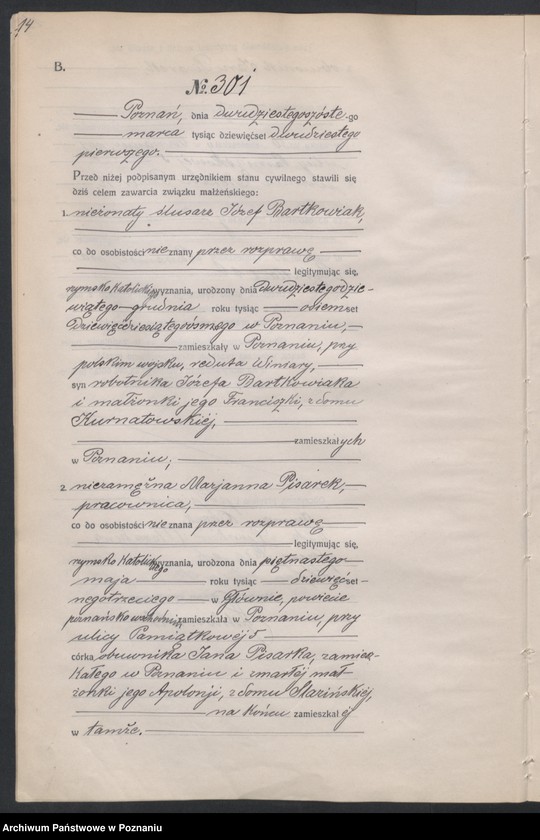 14
B.
№ 301
Poznań, dnia dwudziestegoszóste-go
marca tysiąc dziewięćset dwudziestego
pierwszego.
Przed niżej podpisanym urzędnikiem stanu cywilnego stawili się
dziś celem zawarcia związku małżeńskiego:
1. nieżonaty ślusarz Józef Bartkowiak,
co do osobistości nieznany przez rozprawę
legitymując się,
rzymsko katolickiego wyznania, urodzony dnia dwudziestegodzie-
wiątego grudnia roku tysiąc osiemset
dziewięćdziesiątegoósmego w Poznaniu,
zamieszkały w Poznaniu, przy
polskim wojsku, reduta Winiary,
syn robotnika Józefa Bartkowiaka
i małżonki jego Franciszki, z domu
Kurnatowskiej,
zamieszkałych
w Poznaniu;
2. niezamężna Marjanna Pisarek,
pracownica,
co do osobistości nieznana przez rozprawę
legitymując się,
rzymsko katolickiego wyznania, urodzona dnia piętnastego
maja roku tysiąc dziewięćset-
nego trzeciego w Głównie, powiecie
poznańsko wschodnim, zamieszkała w Poznaniu, przy
ulicy Pamiątkowej 5
córka obuwnika Jana Pisarka, zamiesz-
kałego w Poznaniu i zmarłej mał-
żonki jego Apolonji, z domu
na końcu zamieszkałej
w tamże.
Archiwum Państwowe w Poznaniu